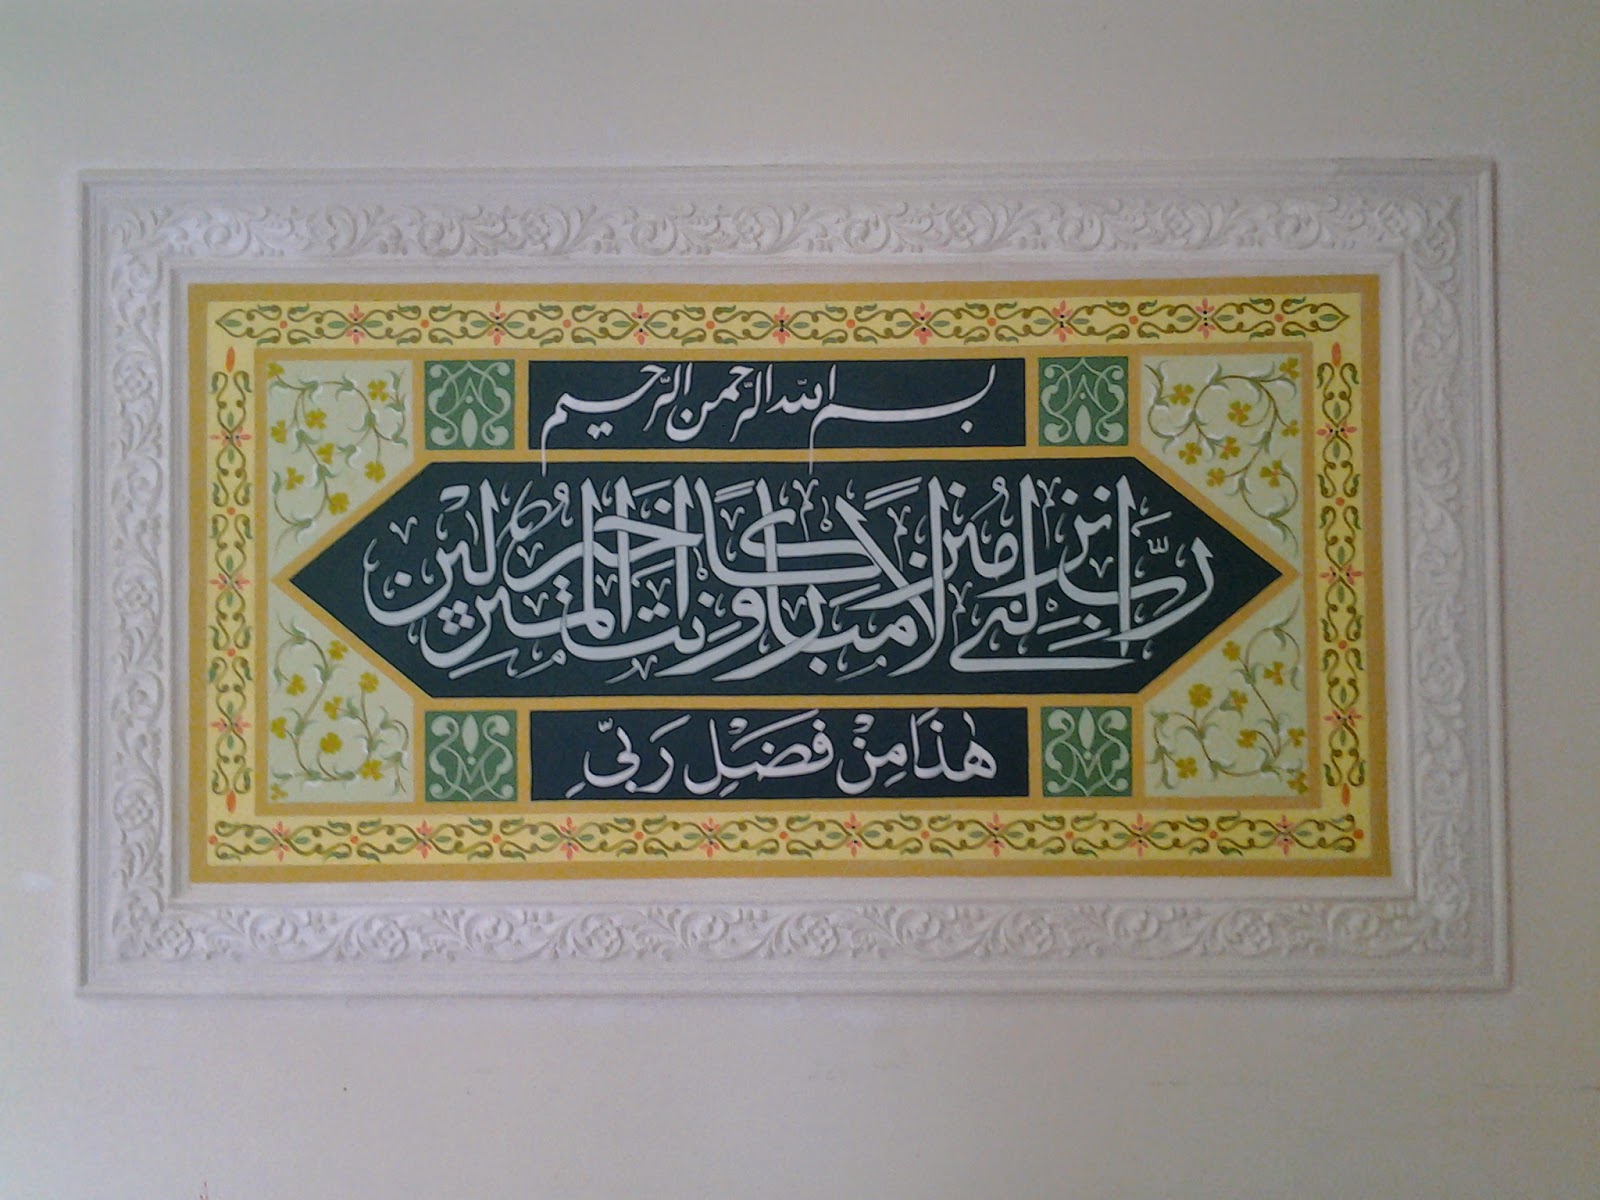 بسم الله الرحمن الرحيم
رَّبِّ أَنزِلْنِي مُنزَلًا مُّبَارَكًا وَأَنتَ خَيْرُ الْمُنزِلِينَ
هٰذَا مِنْ فَضْلِ رَبِّي